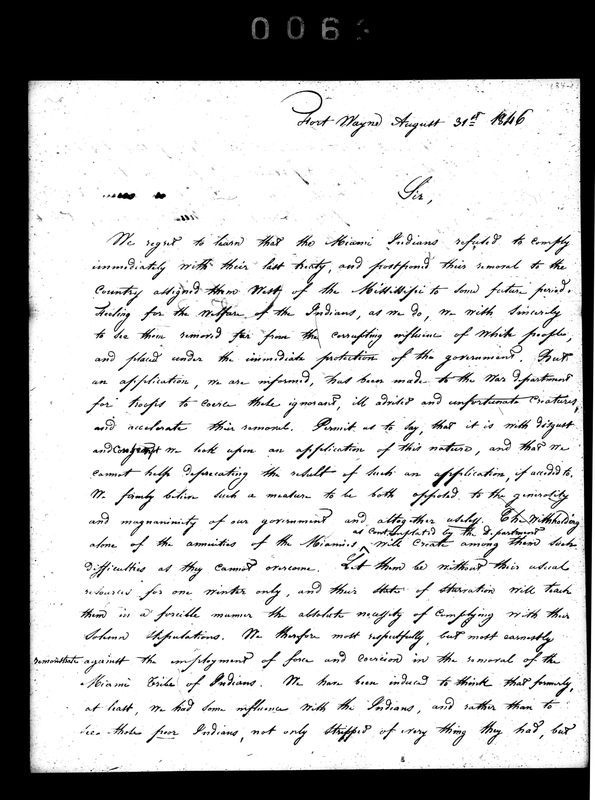 006
Fort Wayne August 31st 1846
Sir,
We regret to learn that the Miami Indians refused to comply
immediately with their last treaty, and postponed their removal to the
Country assigned them West of the Mississippi to some future period.
Feeling for the Welfare of the Indians, as we do, we with sincerity
to see them removed far from the corrupting influence of White people,
and placed under the immediate protection of the government. But
an application, we are informed, has been made to the War department
for troops to coerce these ignorant, ill advised and unfortunate creatures,
and accelerate their removal. Permit us to say, that it is with disgust
and we look upon an application of this nature, and that we
cannot help deprecating the result of such an application, if acceded to.
We firmly believe such a measure to be both opposed to the generosity
and magnanimity of our government and altogether useless. The Withholding
as Contemplated by the department
alone of the annuities of the Miamies will create among them such
difficulties as they cannot overcome. Let them be without their usual
resources for one winter only, and their state of starvation will teach
them in a forcible manner the absolute necessity of complying with their
Solemn Stipulations. We therefore most respectfully, but most earnestly
remonstrate against the employment of force and coercion in the removal of the
Miami Tribe of Indians. We have been induced to think that formerly,
at least, we had some influence with the Indians, and rather than to
see those poor Indians, not only stripped of every thing they had, but